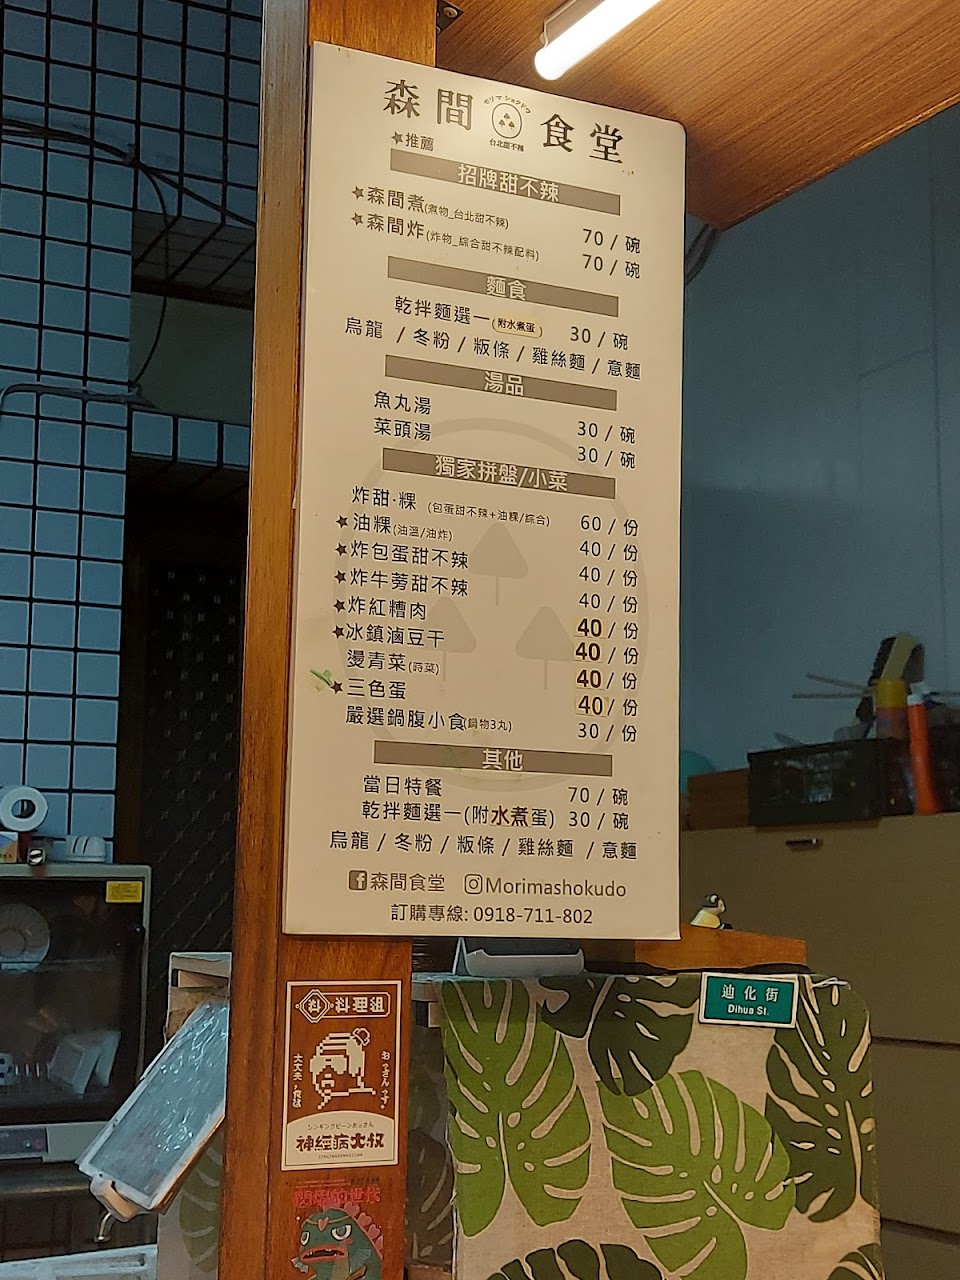 森間 食堂
モリマショクドウ
台北甜不辣
★推薦
招牌甜不辣
★森間煮(煮物_台北甜不辣) 70 / 碗
★森間炸(炸物_綜合甜不辣配料) 70 / 碗
麵食
乾拌麵選一(附水煮蛋) 30 / 碗
烏龍 / 冬粉 / 粄條 / 雞絲麵 / 意麵
湯品
魚丸湯 30 / 碗
菜頭湯 30 / 碗
獨家拼盤/小菜
炸甜·粿 (包蛋甜不辣+油粿/綜合) 60 / 份
★油粿(油溫/油炸) 40 / 份
★炸包蛋甜不辣 40 / 份
★炸牛蒡甜不辣 40 / 份
★炸紅糟肉 40 / 份
★冰鎮滷豆干 40 / 份
燙青菜(時菜) 40 / 份
★三色蛋 40 / 份
嚴選鍋腹小食(鍋物3丸) 30 / 份
其他
當日特餐 70 / 碗
乾拌麵選一(附水煮蛋) 30 / 碗
烏龍 / 冬粉 / 粄條 / 雞絲麵 / 意麵
森間食堂 Morimashokudo
訂購專線: 0918-711-802
迪化街
Dihua St.
料·料理組
おっさんっす!
シンギングビーンおっさん
神經病大叔
悶燒的世代